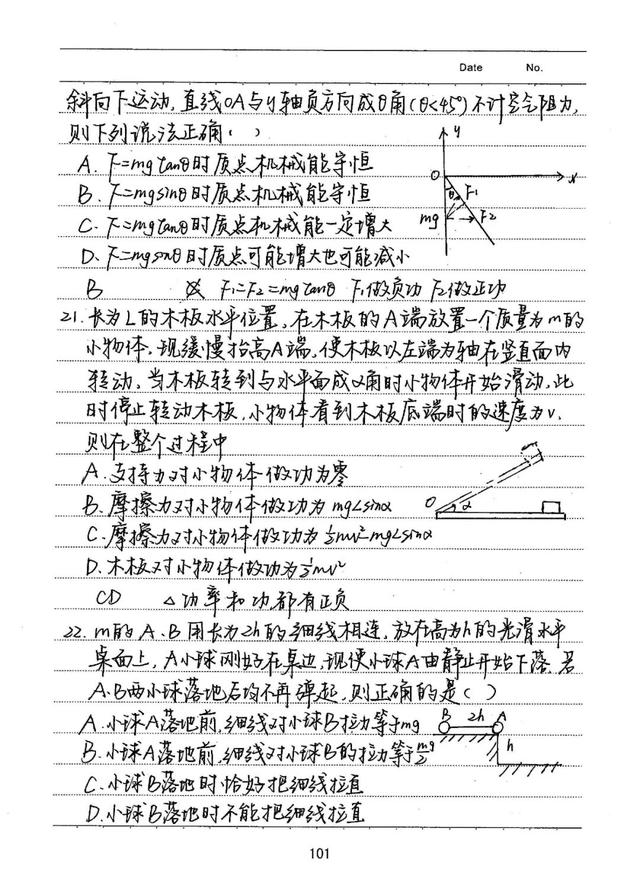 Date No.
斜向下运动,直线OA与y轴负方向成θ角(θ<45°)不计空气阻力,
则下列说法正确( )
A. F=mgtanθ时质点机械能守恒
B. F=mgsinθ时质点机械能守恒
C. F=mgtanθ时质点机械能一定增大
D. F=mgsinθ时质点可能增大也可能减小
B F₁=F₂=mgtanθ F₁做负功 F₂做正功
y
O x
θ F₁
mg F₂
21. 长为L的木板水平位置,在木板的A端放置一个质量为m的
小物体.现缓慢抬高A端,使木板以左端为轴在竖直面内
转动,当木板转到与水平面成α角时小物体开始滑动,此
时停止转动木板,小物体看到木板底端时的速度为v.
则在整个过程中
A.支持力对小物体做功为零
B.摩擦力对小物体做功为mgLsinα
C.摩擦力对小物体做功为½mv²mgLsinα
D.木板对小物体做功为½mv²
O α
CD △功率和功都有正负
22. m的A、B用长为2h的细线相连,放在高为h的光滑水平
桌面上,A小球刚好在桌边,现使小球A由静止开始下落,若
A、B两小球落地后均不再弹起,则正确的是( )
A.小球A落地前,细线对小球B拉力等于mg
B.小球A落地前,细线对小球B的拉力等于mg/2
C.小球B落地时恰好把细线拉直
D.小球B落地时不能把细线拉直
B 2h A
h
101